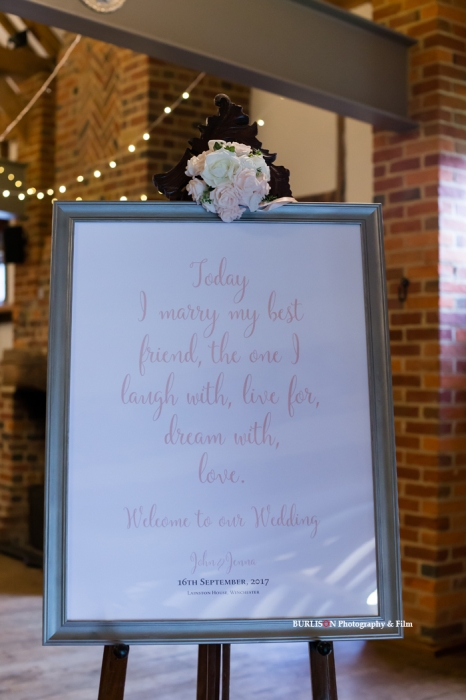 Today
I marry my best
friend, the one I
laugh with, live for,
dream with,
love.
Welcome to our Wedding
John & Jenna
16th September, 2017
Lainston House, Winchester
BURLISON Photography & Film